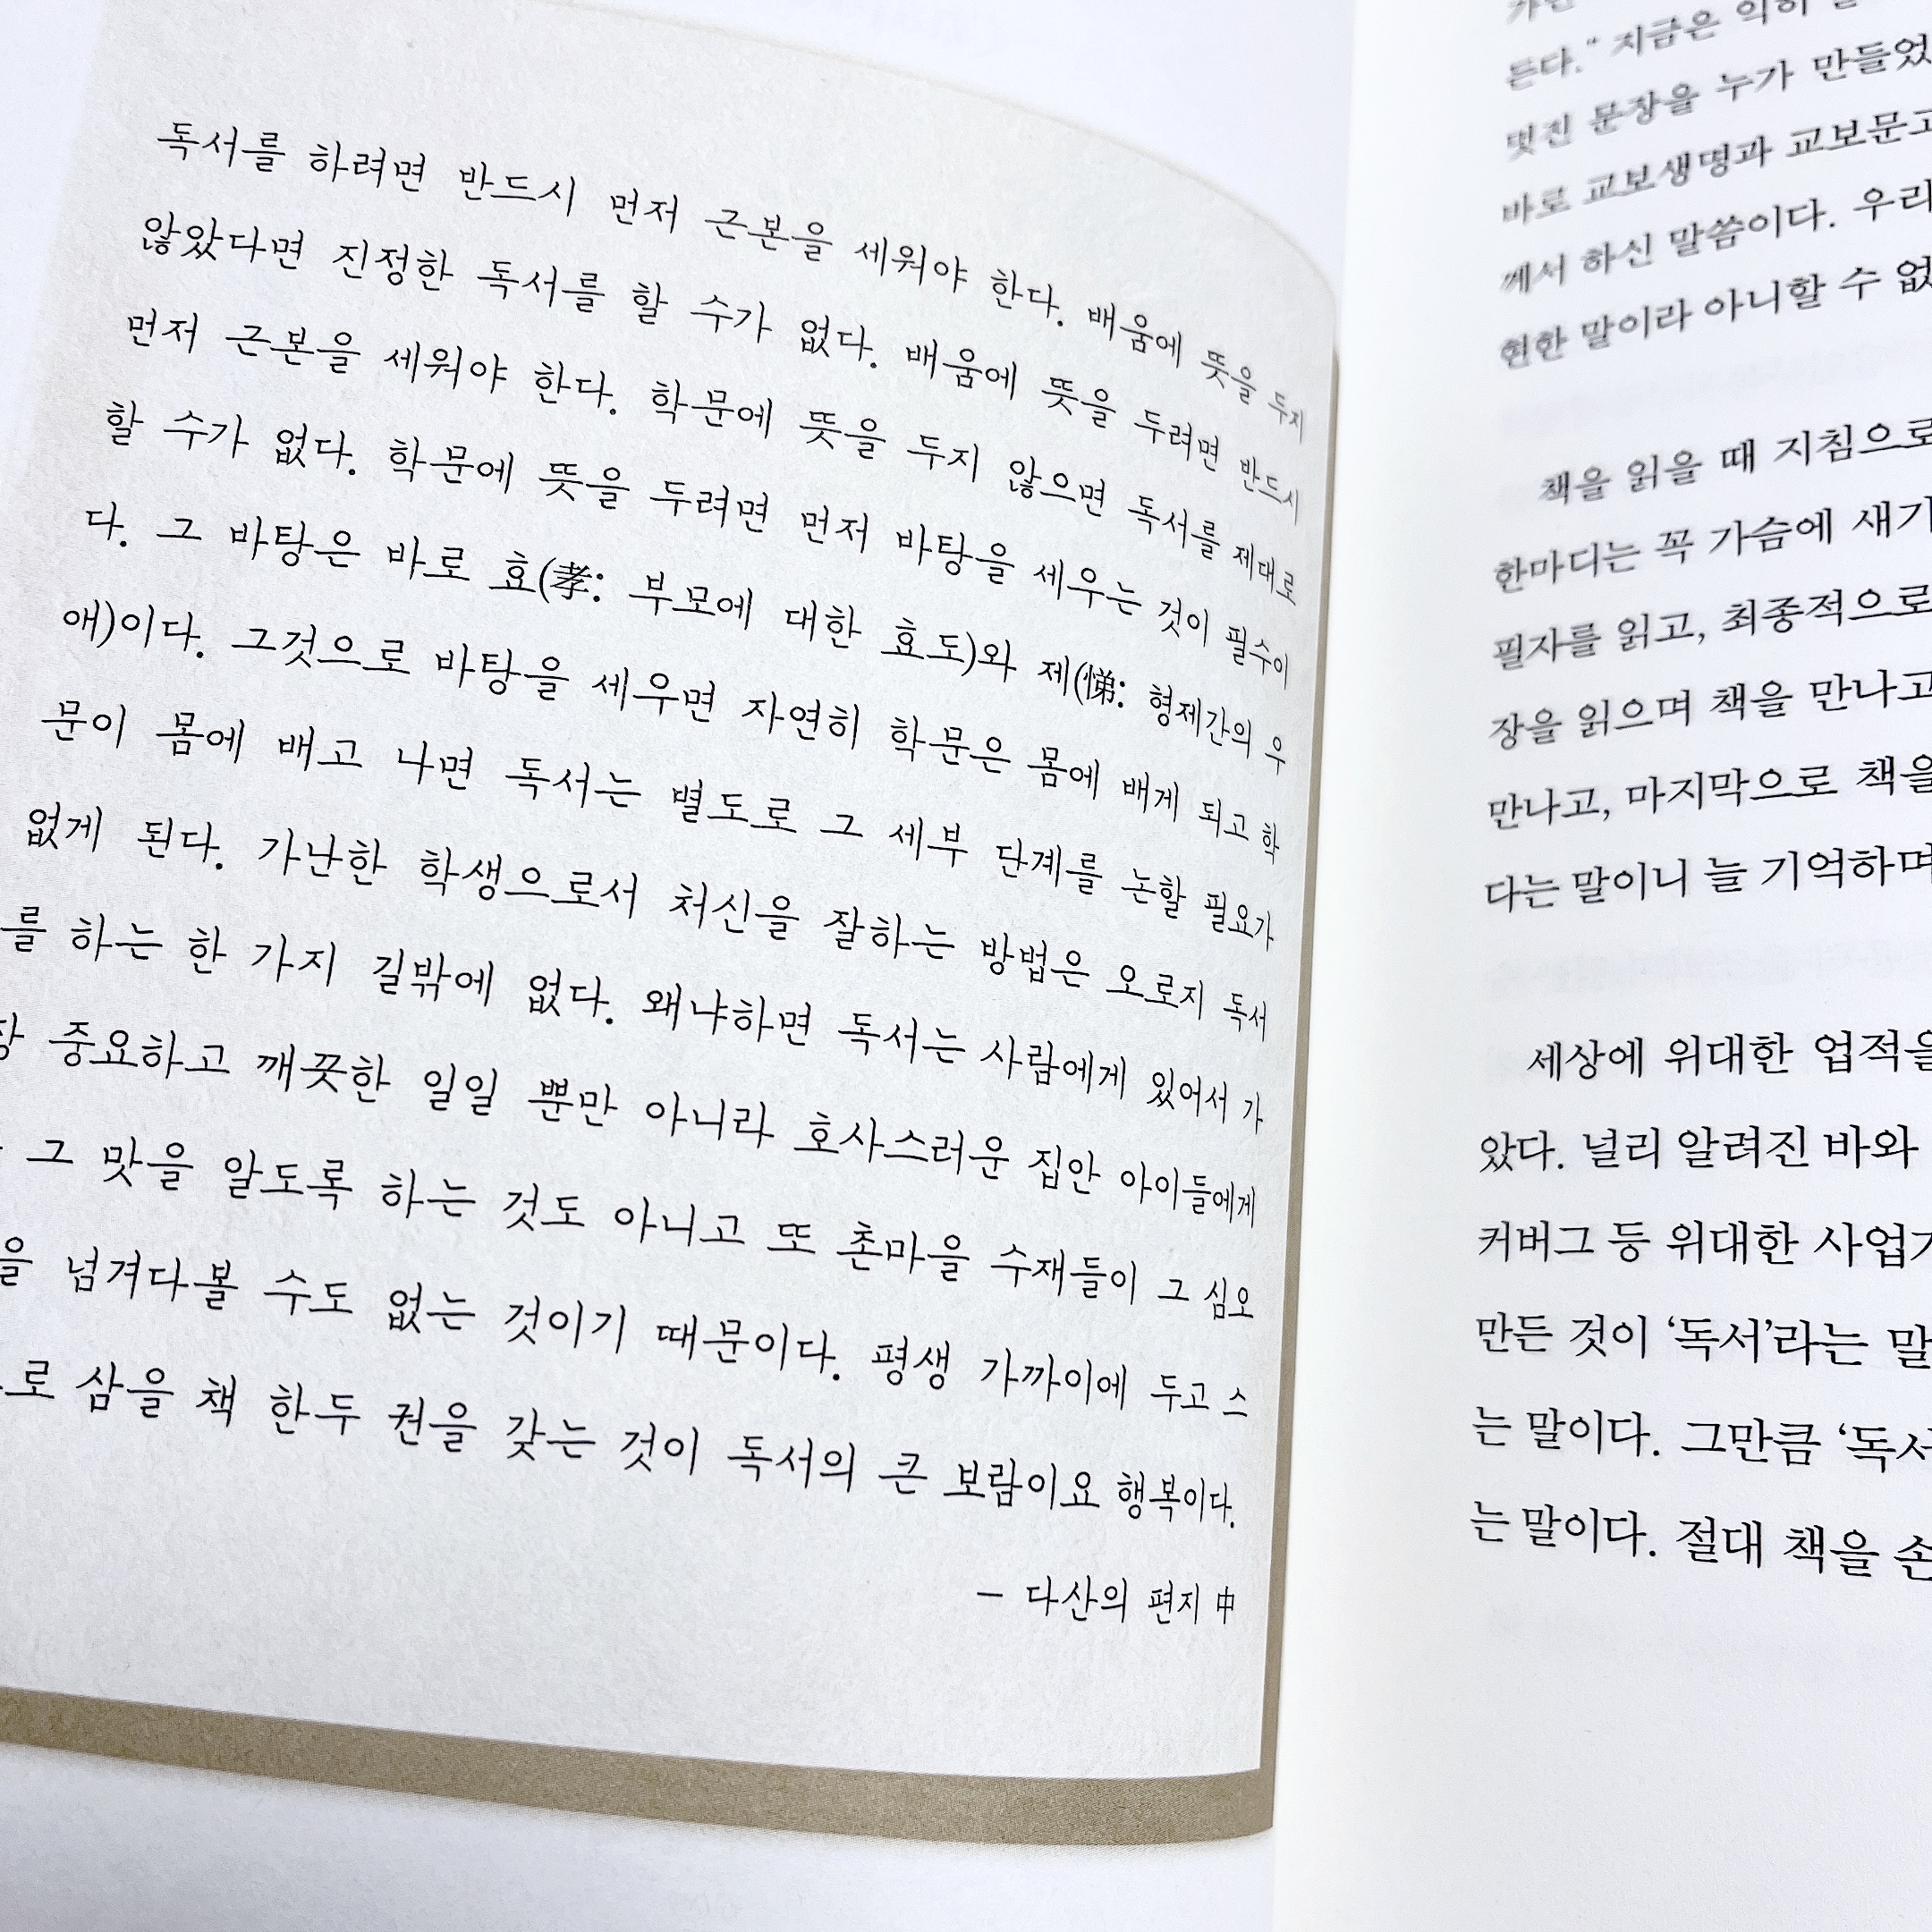 독서를 하려면 반드시 먼저 근본을 세워야 한다. 배움에 뜻을 두지
않았다면 진정한 독서를 할 수가 없다. 배움에 뜻을 두려면 반드시
먼저 근본을 세워야 한다. 학문에 뜻을 두지 않으면 독서를 제대로
할 수가 없다. 학문에 뜻을 두려면 먼저 바탕을 세우는 것이 필수이
다. 그 바탕은 바로 효(孝: 부모에 대한 효도)와 제(悌: 형제간의 우
애)이다. 그것으로 바탕을 세우면 자연히 학문은 몸에 배게 되고 학
문이 몸에 배고 나면 독서는 별도로 그 세부 단계를 논할 필요가
없게 된다. 가난한 학생으로서 처신을 잘하는 방법은 오로지 독서
를 하는 한 가지 길밖에 없다. 왜냐하면 독서는 사람에게 있어서 가
장 중요하고 깨끗한 일일 뿐만 아니라 호사스러운 집안 아이들에게
그 맛을 알도록 하는 것도 아니고 또 촌마을 수재들이 그 심오
을 넘겨다볼 수도 없는 것이기 때문이다. 평생 가까이에 두고 스
로 삼을 책 한두 권을 갖는 것이 독서의 큰 보람이요 행복이다.
- 다산의 편지 中
든다." 지금은 익히
멋진 문장을 누가 만들었
바로 교보생명과 교보문고
께서 하신 말씀이다. 우리
현한 말이라 아니할 수 없
책을 읽을 때 지침으로
한마디는 꼭 가슴에 새기
필자를 읽고, 최종적으로
장을 읽으며 책을 만나고
만나고, 마지막으로 책을
다는 말이니 늘 기억하며
세상에 위대한 업적을
았다. 널리 알려진 바와
커버그 등 위대한 사업가
만든 것이 '독서'라는 말
는 말이다. 그만큼 '독서
는 말이다. 절대 책을 손